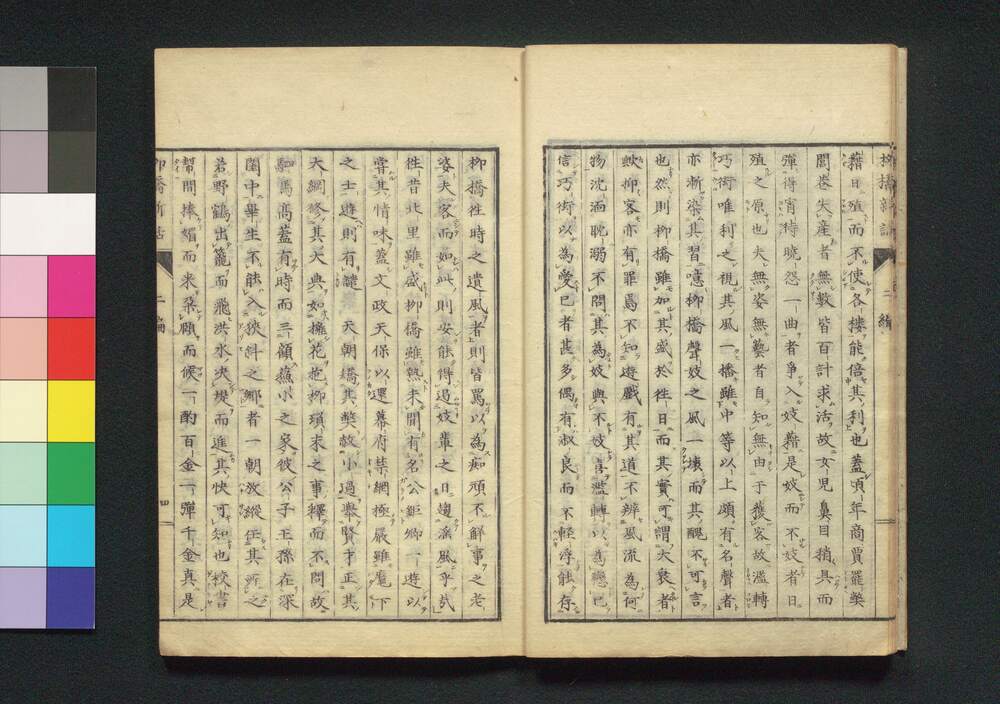 柳橋新誌 二編
藉日殖而不使各樓能倍其利也蓋頃年商賈罷弊
閭巷失産者無數皆百計求活故女児鼻目稍具而
彈得宵待曉怨一曲者爭入妓藉是妓而不妓者日
殖之原也夫無姿無藝者自知無由于獲客故濫轉
巧衒唯利之視其風一橋雖中等以上頗有名聲者
亦漸染其習噫柳橋聲妓之風一壊而其醜不可言
也然則柳橋雖如其盛於徃日而其實可謂大衰者
歟抑客亦有罪焉不知遊戲有其道不辨風流為何
物沈湎耽溺不問其為妓與不妓喜濫轉以為戀已
信巧衒以為愛已者甚多偶有淑良而不輕浮能存
柳橋徃時之遺風者則皆罵以為痴頑不解事之老
婆夫客而如此則安能得遏妓輩之日趨滛風乎哉
徃昔北里雖盛柳橋雖熟未聞有名公鉅卿一遊以
嘗其情味蓋文政天保以還幕府禁網極嚴雖麾下
之士遊則有譴 天朝矯其弊赦小過舉賢才正其
大綱修其大典如擁花施柳瑣末之事釋而不問故
駟馬高蓋有時而三顧蘇小之家彼公子王孫在深
閨中畢生不能入狹斜之鄉者一朝放縱任其所之
若野鶴出籠而飛洪水决堤而進其快可知也校書
幇間捧媚而来朶頤而候一酌百金一彈千金真是
柳橋新誌 二編 四